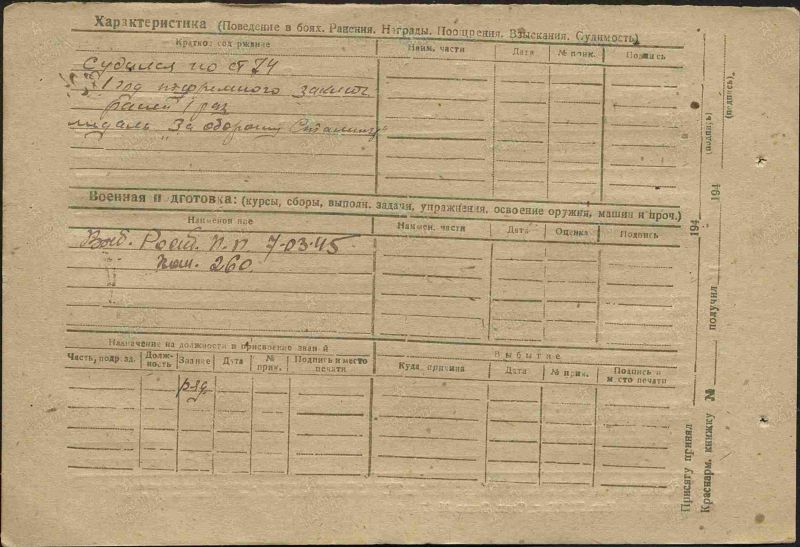 Характеристика (Поведение в боях. Ранения. Награды. Поощрения. Взыскания. Судимость)
Краткое содержание Наим. части Дата № прик. Подпись
Судился по ст 74
1 год тюремного заключ
ранен 1 раз
медаль "За оборону Сталингр"
Военная подготовка: (курсы, сборы, выполн. задачи, упражнения, освоение оружия, машин и проч.)
Наименование Наимен. части Дата Оценка Подпись
Выб. 7-03-45
260
Назначение на должности и присвоение званий
Выбытие
Часть, подразд. Должность Звание Дата № прик. Подпись и место печати Куда, причина Дата № прик. Подпись и место печати
ряд
Присягу принял 194 (подпись)
Краснарм. книжку № получил 194 (подпись)